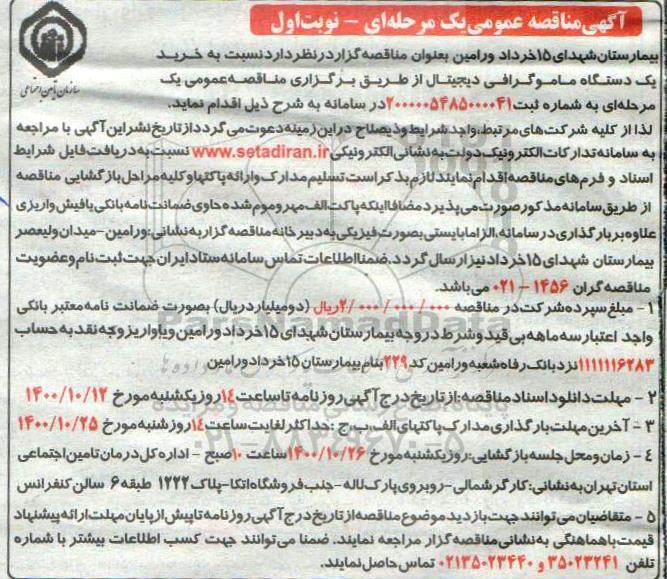 آگهی مناقصه عمومی یک مرحله‌ای - نوبت اول
سازمان تامین اجتماعی
بیمارستان شهدای ۱۵ خرداد ورامین بعنوان مناقصه گزار در نظر دارد نسبت به خرید
یک دستگاه ماموگرافی دیجیتال از طریق برگزاری مناقصه عمومی یک
مرحله‌ای به شماره ثبت ۲۰۰۰۰۰۵۴۸۵۰۰۰۰۴۱ در سامانه به شرح ذیل اقدام نماید.
لذا از کلیه شرکت‌های مرتبط، واجد شرایط و ذیصلاح در این زمینه دعوت می گردد از تاریخ نشر این آگهی با مراجعه
به سامانه تدارکات الکترونیک دولت به نشانی الکترونیکی www.setadiran.ir نسبت به دریافت فایل شرایط
اسناد و فرم‌های مناقصه اقدام نمایند لازم بذکر است تسلیم مدارک و ارائه پاکتها و کلیه مراحل بازگشایی مناقصه
از طریق سامانه مذکور صورت می پذیرد مضافا اینکه پاکت الف مهر و موم شده حاوی ضمانت نامه بانکی یا فیش واریزی
علاوه بر بارگذاری در سامانه، الزاما بایستی بصورت فیزیکی به دبیرخانه مناقصه گزار به نشانی: ورامین - میدان ولیعصر
بیمارستان شهدای ۱۵ خرداد نیز ارسال گردد. ضمنا اطلاعات تماس سامانه ستاد ایران جهت ثبت نام و عضویت
مناقصه گران ۱۴۵۶ - ۰۲۱ می باشد.
۱- مبلغ سپرده شرکت در مناقصه ۲/۰۰۰/۰۰۰/۰۰۰ ریال (دو میلیارد ریال) بصورت ضمانت نامه معتبر بانکی
واجد اعتبار سه ماهه بی قید و شرط در وجه بیمارستان شهدای ۱۵ خرداد ورامین و یا واریز وجه نقد به حساب
۱۱۱۱۱۱۶۲۸۳ نزد بانک رفاه شعبه ورامین کد ۲۲۹ بنام بیمارستان ۱۵ خرداد ورامین
۲ - مهلت دانلود اسناد مناقصه: از تاریخ درج آگهی روزنامه تا ساعت ۱۴ روز یکشنبه مورخ ۱۴۰۰/۱۰/۱۲
۳ - آخرین مهلت بارگذاری مدارک پاکتهای الف، ب، ج : حداکثر لغایت ساعت ۱۴ روز شنبه مورخ ۱۴۰۰/۱۰/۲۵
۴ - زمان و محل جلسه بازگشایی: روز یکشنبه مورخ ۱۴۰۰/۱۰/۲۶ ساعت ۱۰ صبح - اداره کل درمان تامین اجتماعی
استان تهران به نشانی: کارگر شمالی- روبروی پارک لاله- جنب فروشگاه اتکا- پلاک ۱۲۲۲ طبقه ۶ سالن کنفرانس
۵ - متقاضیان می توانند جهت بازدید موضوع مناقصه از تاریخ درج آگهی روزنامه تا پیش از پایان مهلت ارائه پیشنهاد
قیمت با هماهنگی به نشانی مناقصه گزار مراجعه نمایند. ضمنا می توانند جهت کسب اطلاعات بیشتر با شماره
تلفن ۳۵۰۲۳۲۴۱ و ۰۲۱۳۵۰۲۳۴۴۰ تماس حاصل نمایند.
۰۲۱-۸۸۳۴۹۶۷۰-۵